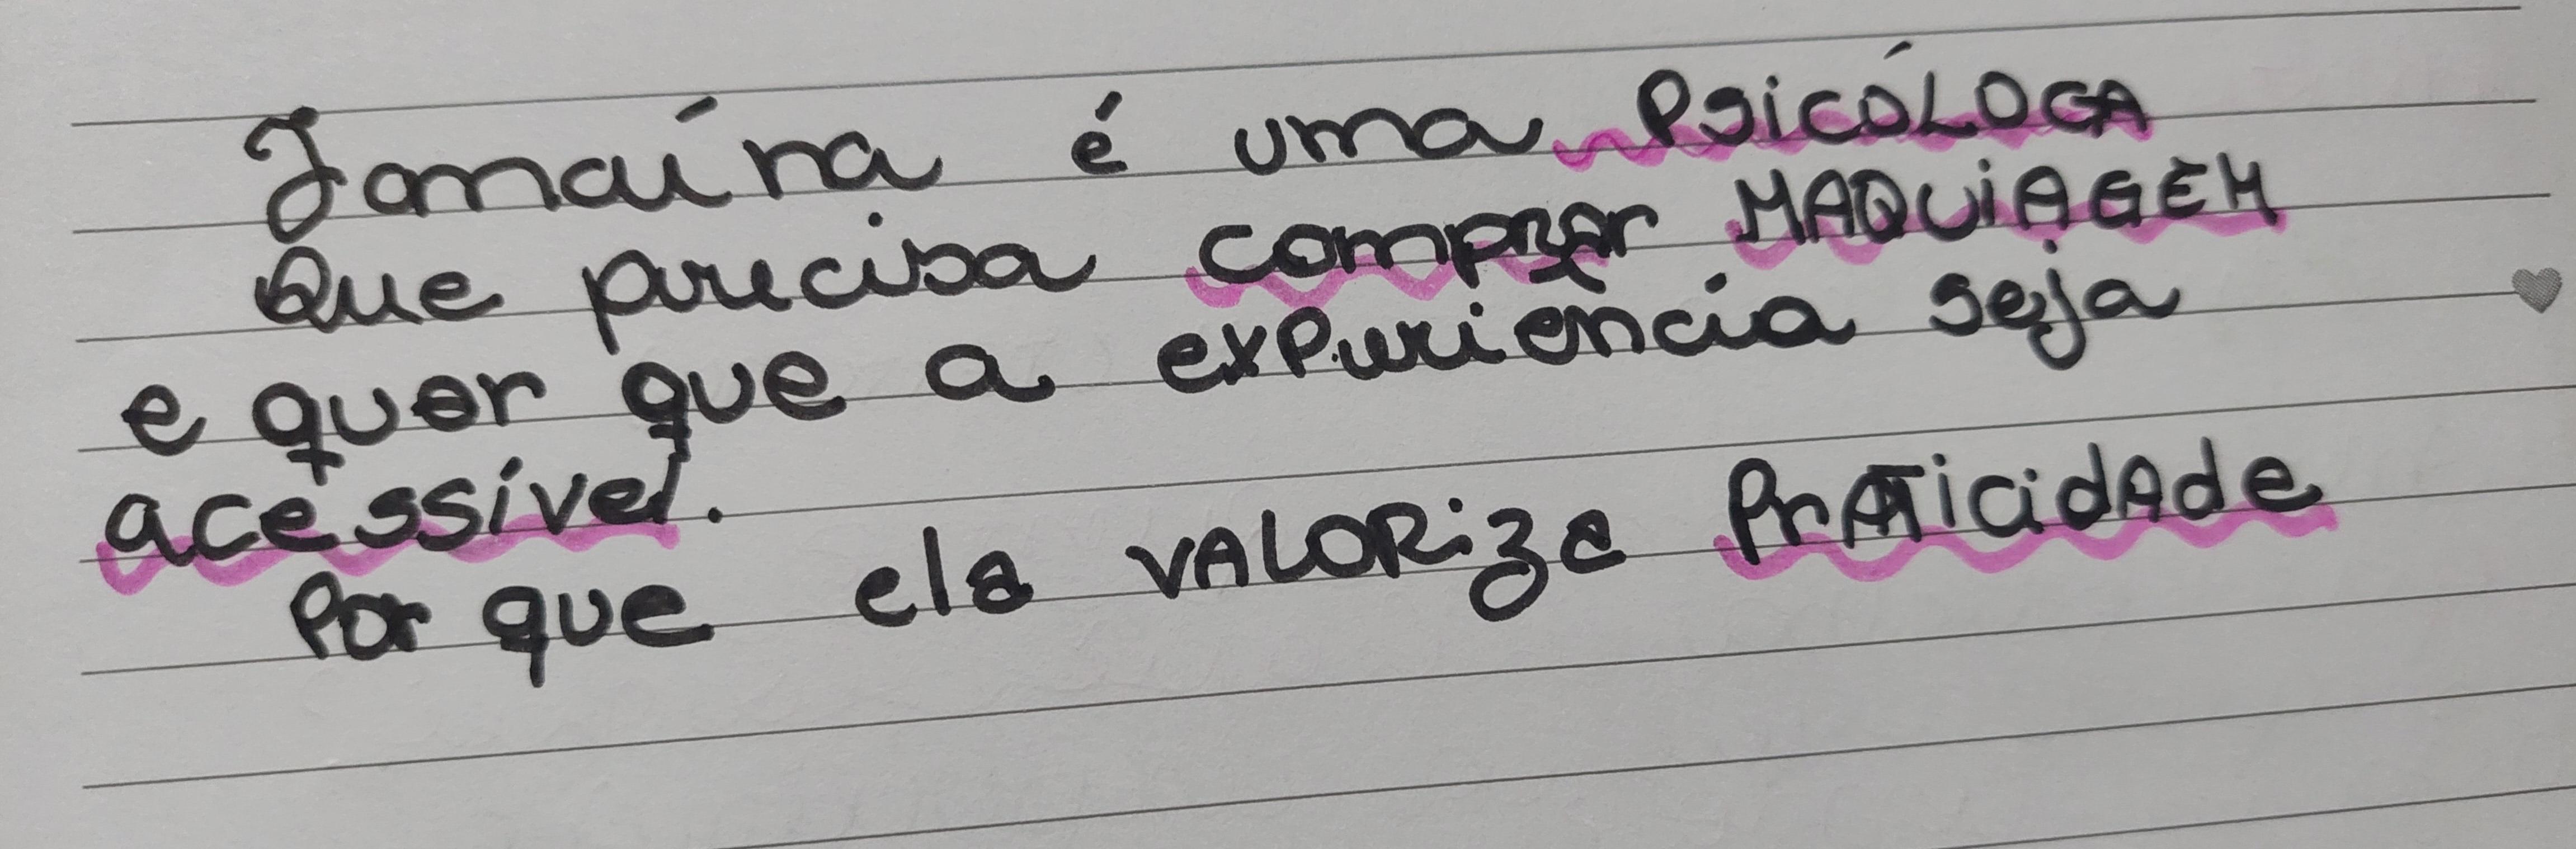 Janaína é uma PSICÓLOGA
Que precisa comprar MAQUIAGEM
e quer que a experiência seja
acessível.
Por que ela VALORiza PrATicidAde